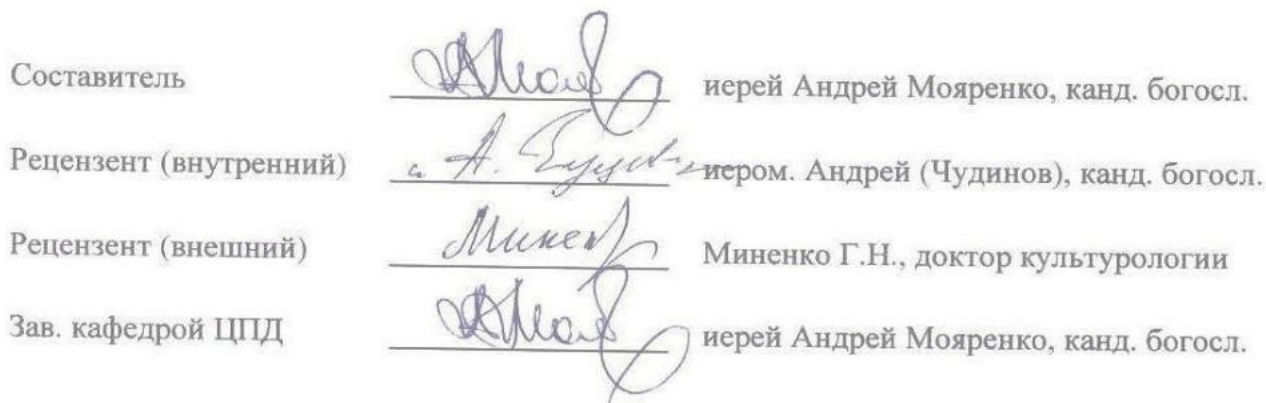 Составитель иерей Андрей Мояренко, канд. богосл.
Рецензент (внутренний) и А. иером. Андрей (Чудинов), канд. богосл.
Рецензент (внешний) Миненко Г.Н., доктор культурологии
Зав. кафедрой ЦПД иерей Андрей Мояренко, канд. богосл.